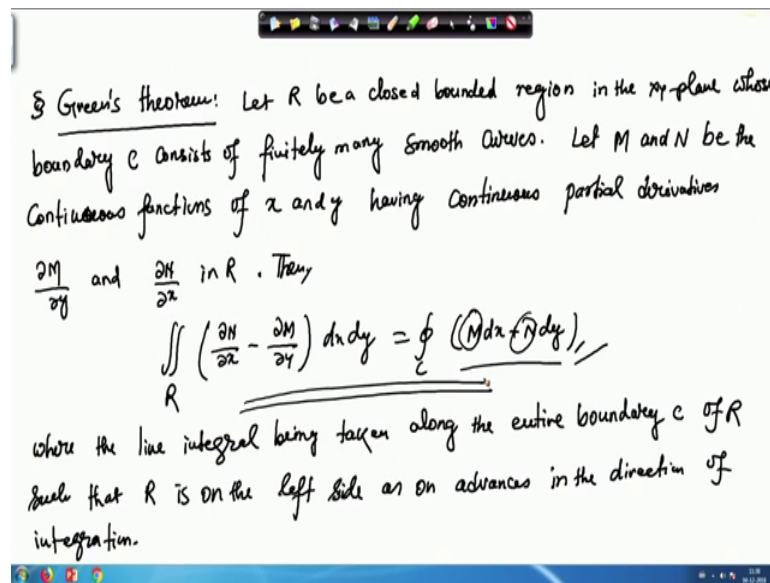 § Green's theorem: Let R be a closed bounded region in the xy-plane whose
boundary C consists of finitely many smooth curves. Let M and N be the
Continuous functions of x and y having continuous partial derivatives
∂M/∂y and ∂N/∂x in R. Then,
∬_R (∂N/∂x - ∂M/∂y) dx dy = ∮_C (M dx + N dy),
where the line integral being taken along the entire boundary C of R
such that R is on the left side as on advances in the direction of
integration.